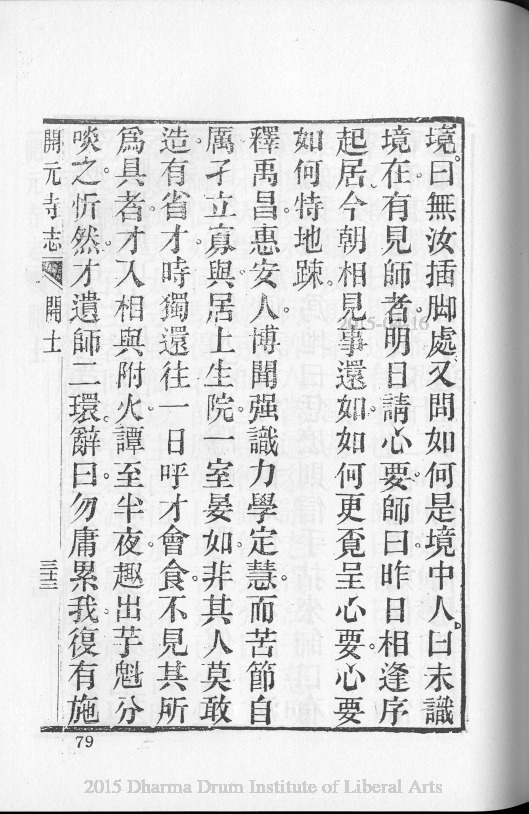 境。曰無汝插脚處。又問如何是境中人。曰未識
境在。有見師者。明日請心要。師曰昨日相逢序
起居。今朝相見事還如。如何更覓呈心要。心要
如何特地踈。
釋禹昌。惠安人。博聞强識。力學定慧。而苦節自
厲。孑立寡與。居上生院一室晏如。非其人莫敢
造。有省才時獨還往。一日呼才會食。不見其所
爲具者。才入相與附火。譚至半夜。趣出芋魁分
啖之。忻然。才遺師二環。辭曰。勿庸累我。復有施
開元寺志 開士 三十三
79
2015 Dharma Drum Institute of Liberal Arts